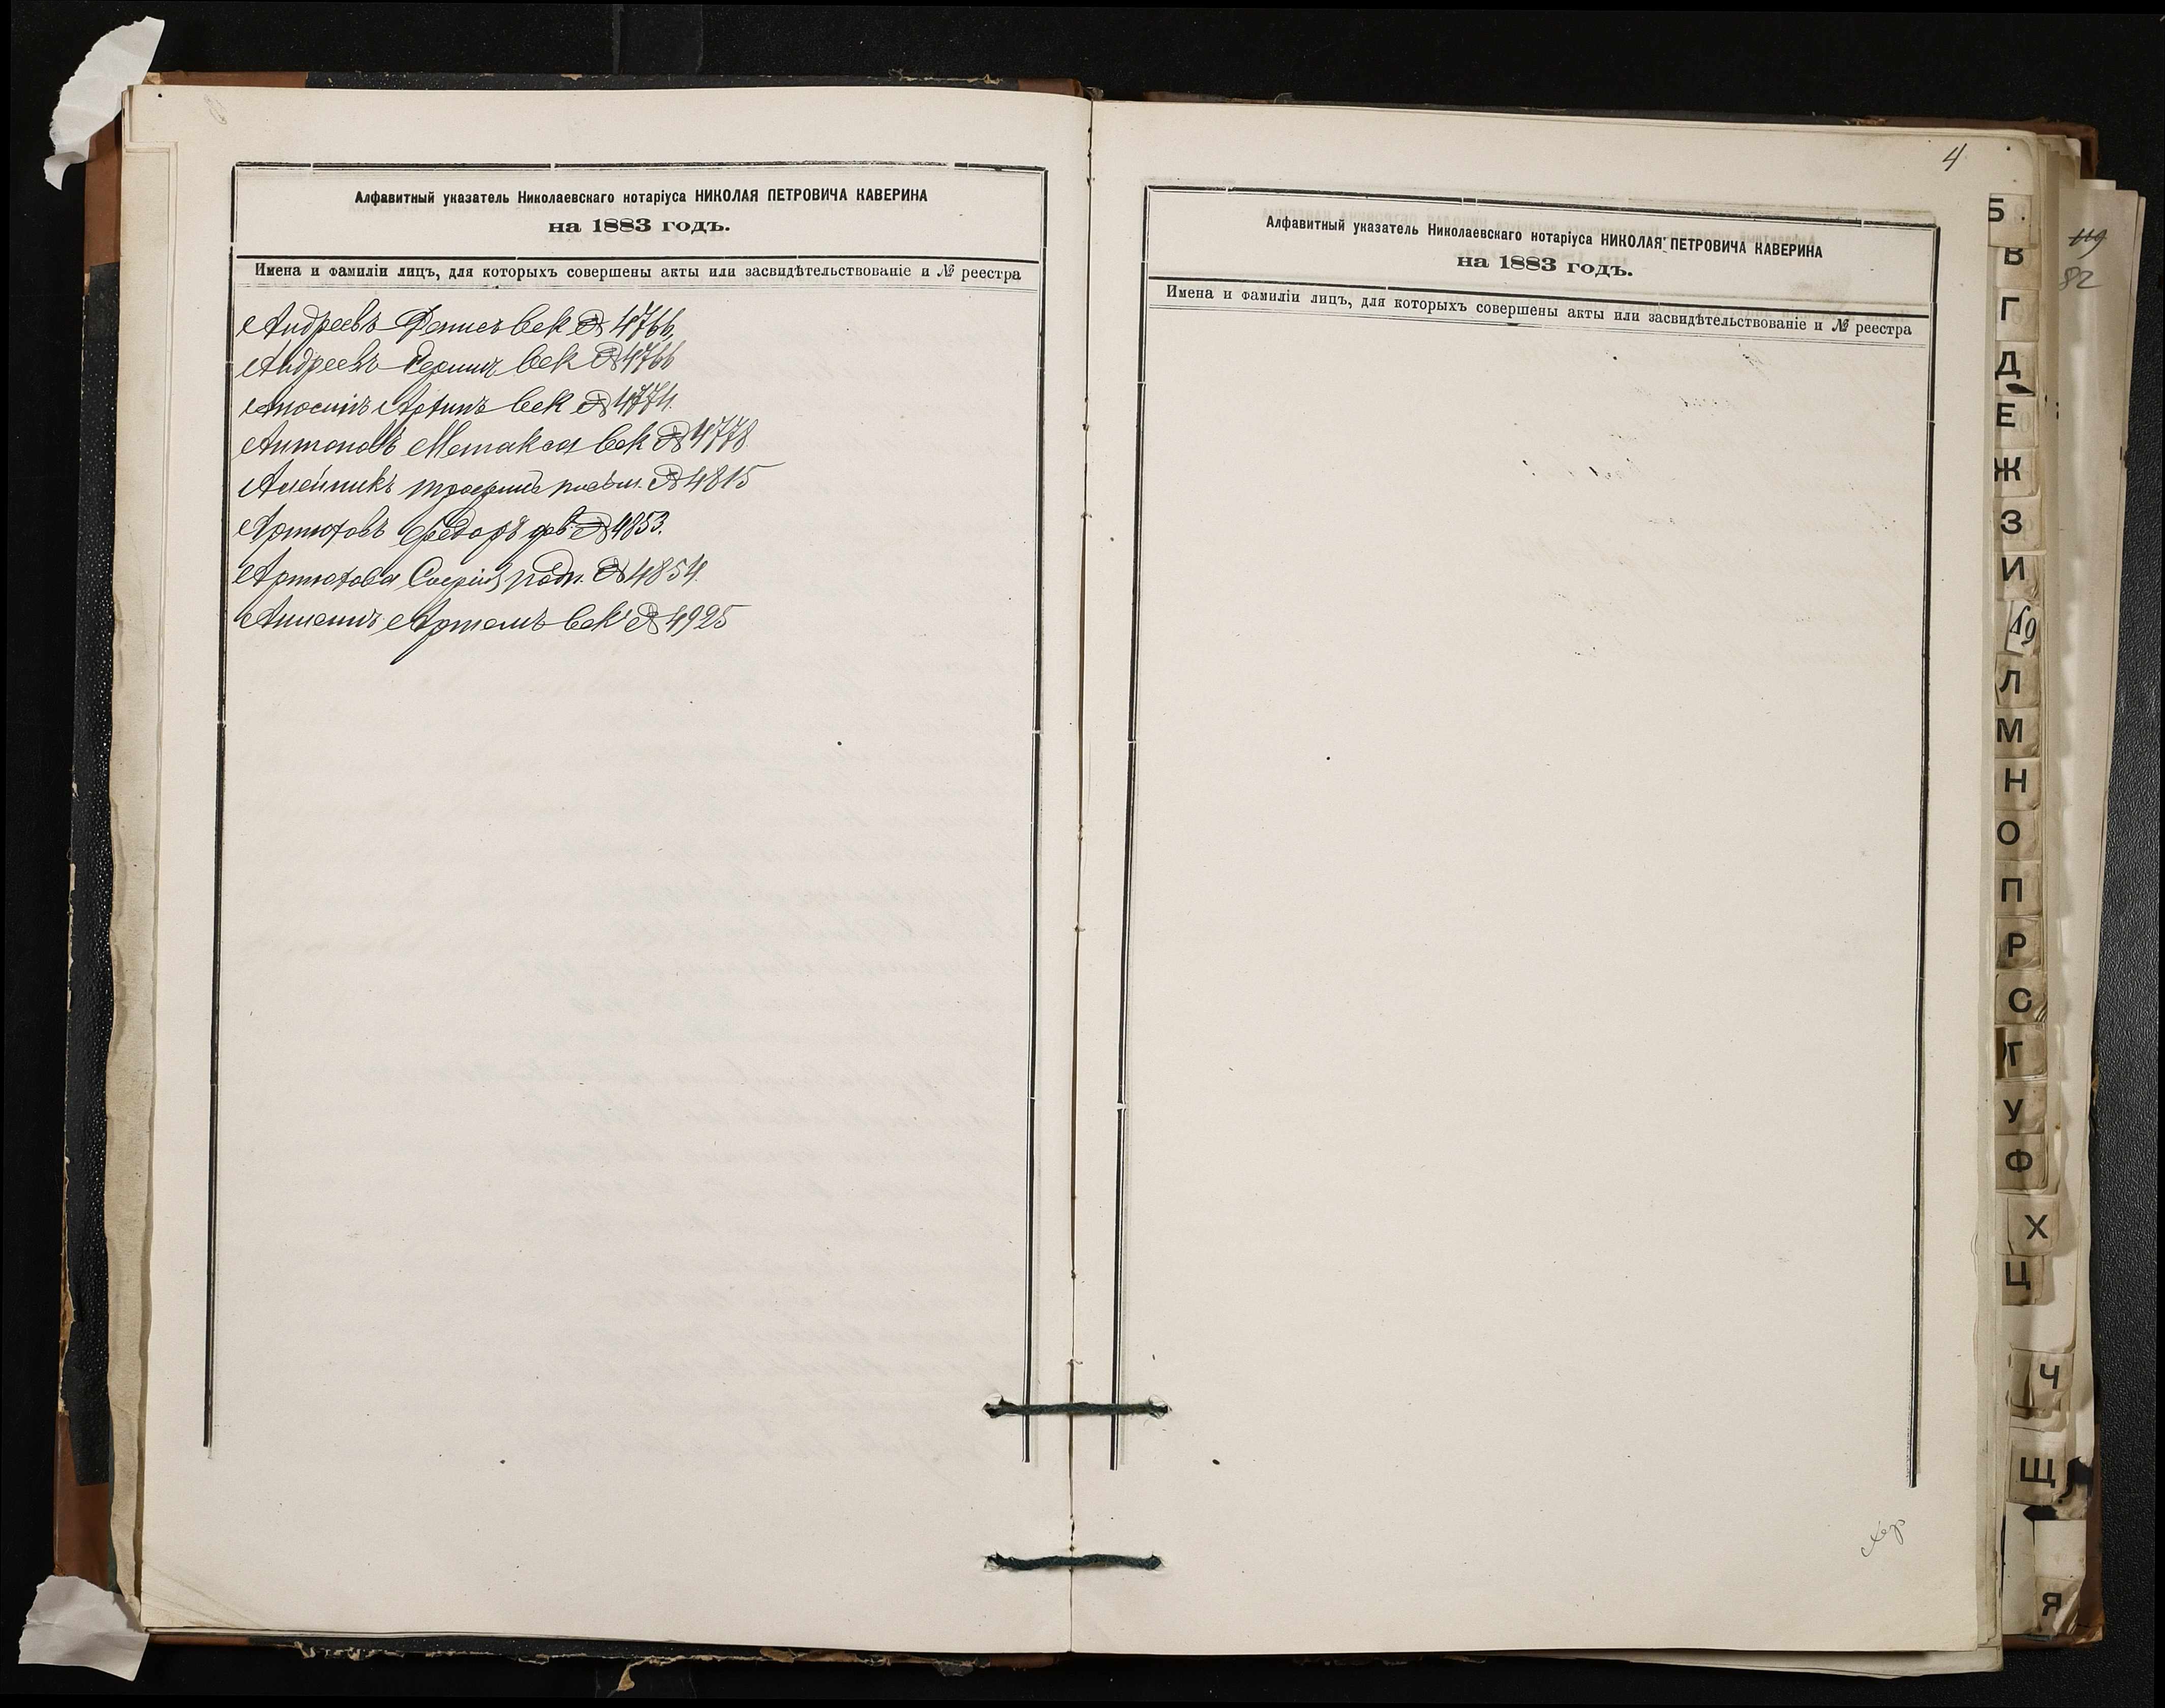 Алфавитный указатель Николаевскаго нотаріуса НИКОЛАЯ ПЕТРОВИЧА КАВЕРИНА
на 1883 годъ.
Имена и фамиліи лицъ, для которыхъ совершены акты или засвидѣтельствованіе и № реестра
Андреевъ Денисъ век № 4766.
Андреевъ век № 4766
век № 4774.
Антоновъ век № 4778
Алейникъ № 4815
Артюховъ Федоръ дов. № 4853.
Артюхова Софія № 4854.
Артемъ век № 4925
4
Алфавитный указатель Николаевскаго нотаріуса НИКОЛАЯ ПЕТРОВИЧА КАВЕРИНА
на 1883 годъ.
Имена и фамиліи лицъ, для которыхъ совершены акты или засвидѣтельствованіе и № реестра
Б
В
Г
Д
Е
Ж
З
И
Л
М
Н
О
П
Р
С
Т
У
Ф
Х
Ц
Ч
Щ
Я
119
82